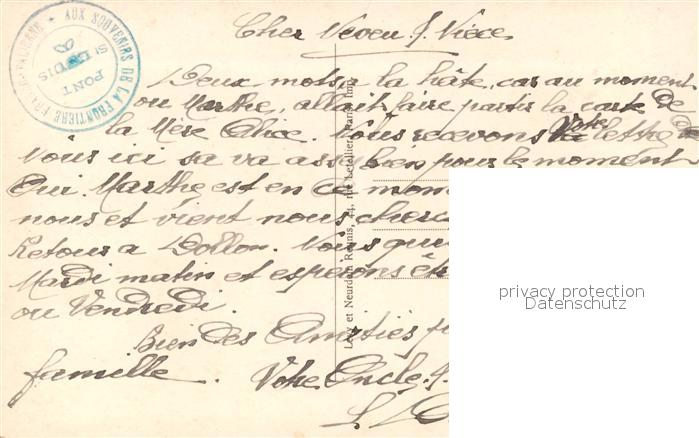 AUX SOUVENIRS DE LA FRONTIERE
PONT
St LOUIS
Cher Neveu & Nièce
Deux mots, a la hâte, car au moment
ou Marthe, allait faire partir la carte de
la Mère Alice. Nous recevons Votre lettre de
Nous ici sa va assez bien pour le moment
Oui Marthe est en ce mom
nous et vient nous cherc
Retour a Dollon. Nous
Mardi matin et espérons
ou Vendredi.
Bien des Amitiés
famille. Votre Oncle
Lévy et Neurdein Réunis, 44, rue Letellier, Paris Imp.
privacy protection
Datenschutz